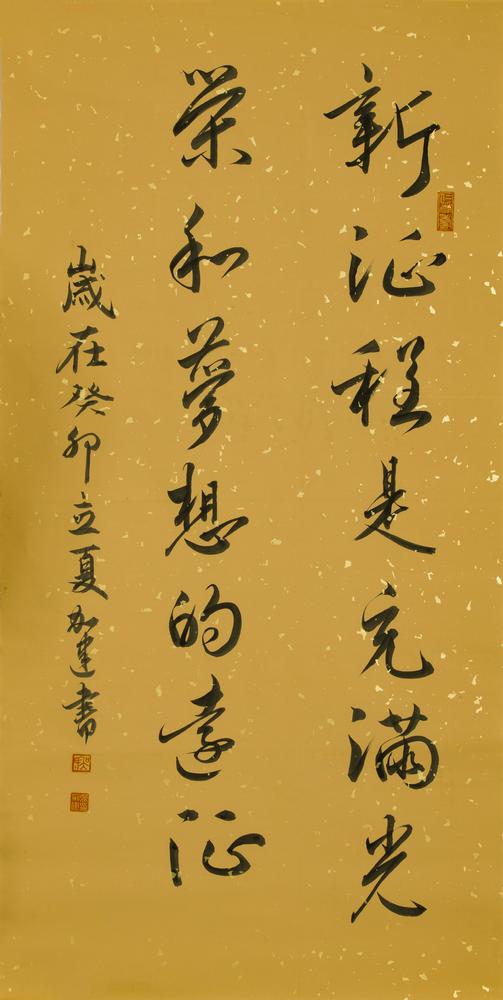 新征程是充满光
荣和梦想的远征
歳在癸卯立夏加建書